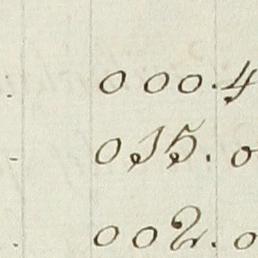 000.4
015.0
002.0